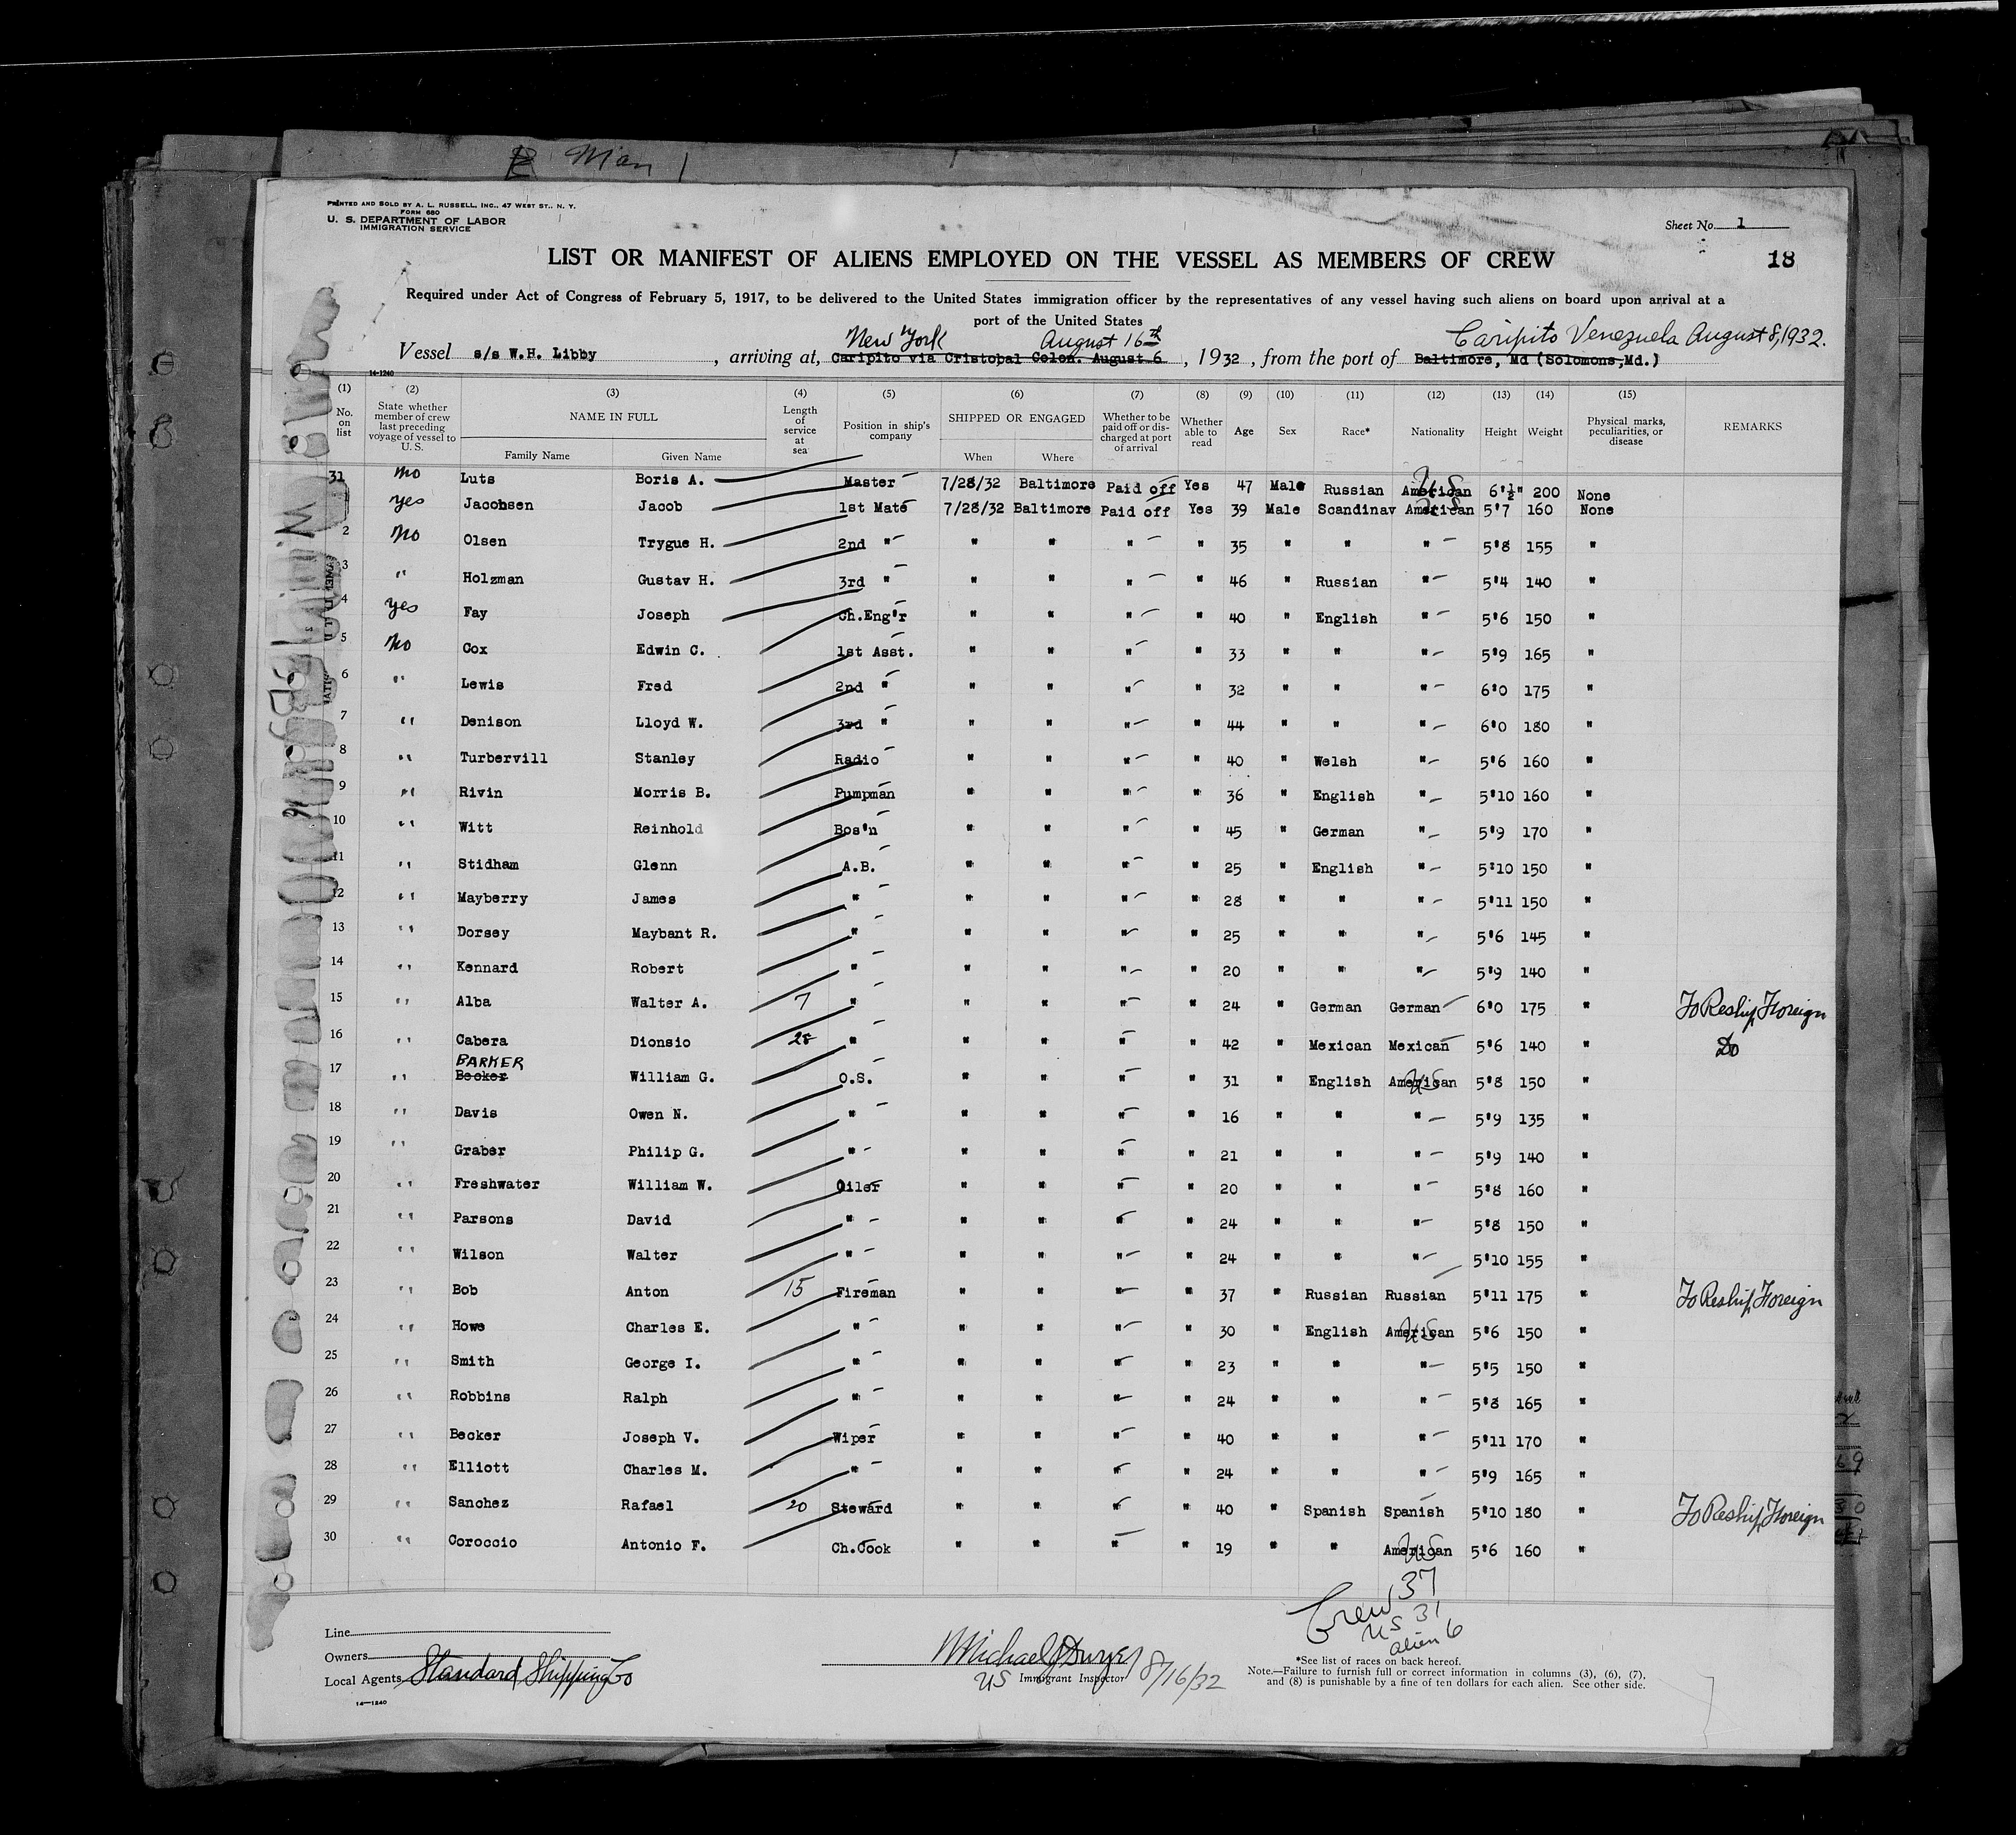 Man
PRINTED AND SOLD BY A. L. RUSSELL, INC., 47 WEST ST., N. Y.
FORM 680
U. S. DEPARTMENT OF LABOR
IMMIGRATION SERVICE
Sheet No. 1
LIST OR MANIFEST OF ALIENS EMPLOYED ON THE VESSEL AS MEMBERS OF CREW
18
Required under Act of Congress of February 5, 1917, to be delivered to the United States immigration officer by the representatives of any vessel having such aliens on board upon arrival at a
port of the United States
New York August 16th Caripito Venezuela August 8, 1932.
Vessel s/s W.H. Libby, arriving at, Caripito via Cristobal Colon. August 6, 1932, from the port of Baltimore, Md (Solomons, Md.)
14-1240
(1) (2) (3) (4) (5) (6) (7) (8) (9) (10) (11) (12) (13) (14) (15)
No. on list State whether member of crew last preceding voyage of vessel to U. S. NAME IN FULL Length of service at sea Position in ship's company SHIPPED OR ENGAGED Whether to be paid off or discharged at port of arrival Whether able to read Age Sex Race* Nationality Height Weight Physical marks, peculiarities, or disease REMARKS
Family Name Given Name When Where
31 No Luts Boris A. Master 7/28/32 Baltimore Paid off Yes 47 Male Russian American US 6'½" 200 None
1 Yes Jacobsen Jacob 1st Mate 7/28/32 Baltimore Paid off Yes 39 Male Scandinav American US 5'7 160 None
2 No Olsen Trygue H. 2nd " " " " " 35 " " " 5'8 155 "
3 " Holzman Gustav H. 3rd " " " " " 46 " Russian " 5'4 140 "
4 Yes Fay Joseph Ch.Eng'r " " " " 40 " English " 5'6 150 "
5 No Cox Edwin C. 1st Asst. " " " " 33 " " " 5'9 165 "
6 " Lewis Fred 2nd " " " " " 32 " " " 6'0 175 "
7 " Denison Lloyd W. 3rd " " " " " 44 " " " 6'0 180 "
8 " Turbervill Stanley Radio " " " " 40 " Welsh " 5'6 160 "
9 " Rivin Morris B. Pumpman " " " " 36 " English " 5'10 160 "
10 " Witt Reinhold Bos'n " " " " 45 " German " 5'9 170 "
11 " Stidham Glenn A.B. " " " " 25 " English " 5'10 150 "
12 " Mayberry James " " " " " 28 " " " 5'11 150 "
13 " Dorsey Maybant R. " " " " " 25 " " " 5'6 145 "
14 " Kennard Robert " " " " " 20 " " " 5'9 140 "
15 " Alba Walter A. 7 " " " " " 24 " German German 6'0 175 " To Reship Foreign
16 " Cabera Dionsio 28 " " " " " 42 " Mexican Mexican 5'6 140 " Do
BARKER
17 " Becker William G. O.S. " " " " 31 " English American US 5'8 150 "
18 " Davis Owen N. " " " " " 16 " " " 5'9 135 "
19 " Graber Philip G. " " " " " 21 " " " 5'9 140 "
20 " Freshwater William W. Oiler " " " " 20 " " " 5'8 160 "
21 " Parsons David " " " " " 24 " " " 5'8 150 "
22 " Wilson Walter " " " " " 24 " " " 5'10 155 "
23 " Bob Anton 15 Fireman " " " " 37 " Russian Russian 5'11 175 " To Reship Foreign
24 " Howe Charles E. " " " " " 30 " English American US 5'6 150 "
25 " Smith George I. " " " " " 23 " " " 5'5 150 "
26 " Robbins Ralph " " " " " 24 " " " 5'8 165 "
27 " Becker Joseph V. Wiper " " " " 40 " " " 5'11 170 "
28 " Elliott Charles M. " " " " " 24 " " " 5'9 165 "
29 " Sanchez Rafael 20 Steward " " " " 40 " Spanish Spanish 5'10 180 " To Reship Foreign
30 " Coroccio Antonio F. Ch.Cook " " " " 19 " " American US 5'6 160 "
Crew 37
US 31
alien 6
Line
Owners
Local Agents Standard Shipping Co
Michael J Dwyer 8/16/32
US Immigrant Inspector
*See list of races on back hereof.
Note.—Failure to furnish full or correct information in columns (3), (6), (7),
and (8) is punishable by a fine of ten dollars for each alien. See other side.
14—1240